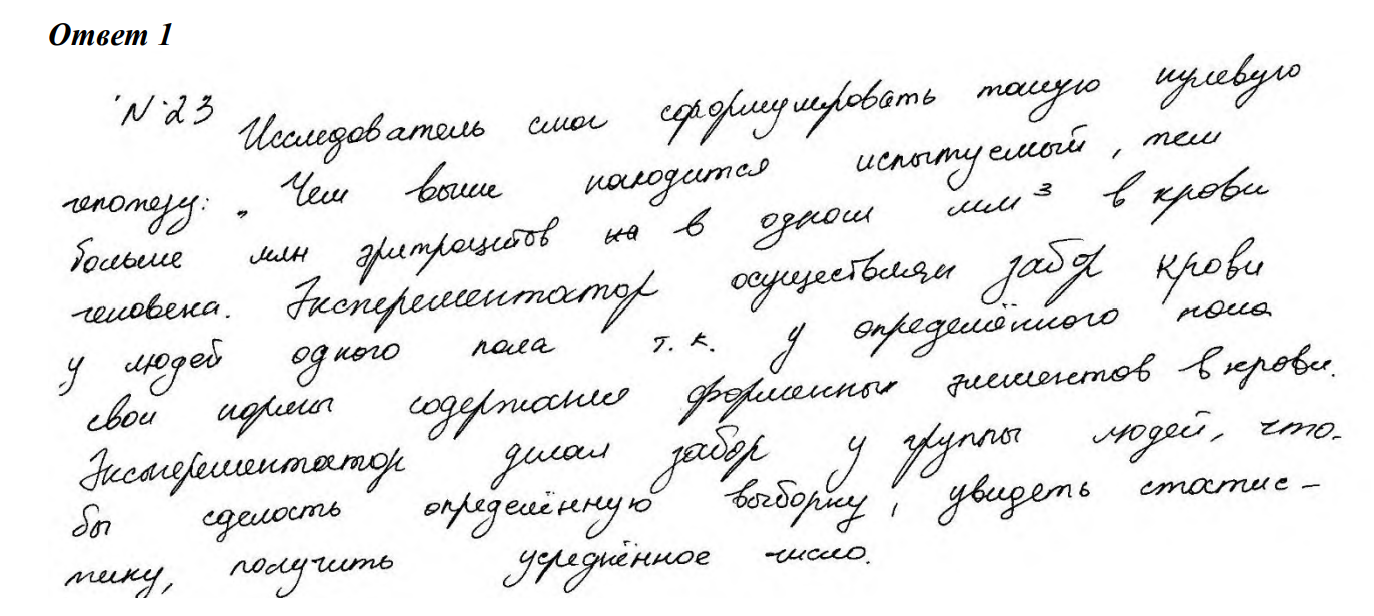 Ответ 1
N 23 Исследователь смог сформулировать такую нулевую
гепотезу: „Чем выше находится испытуемый, тем
больше млн эритроцитов на в одном мм³ в крови
человека. Эксперементатор осуществлял забор крови
у людей одного пола т.к. у определённого пола
свои нормы содержания форменных элементов в крови.
Эксперементатор делал забор у группы людей, что-
бы сделать определённую выборку, увидеть статис-
тику, получить усреднённое число.